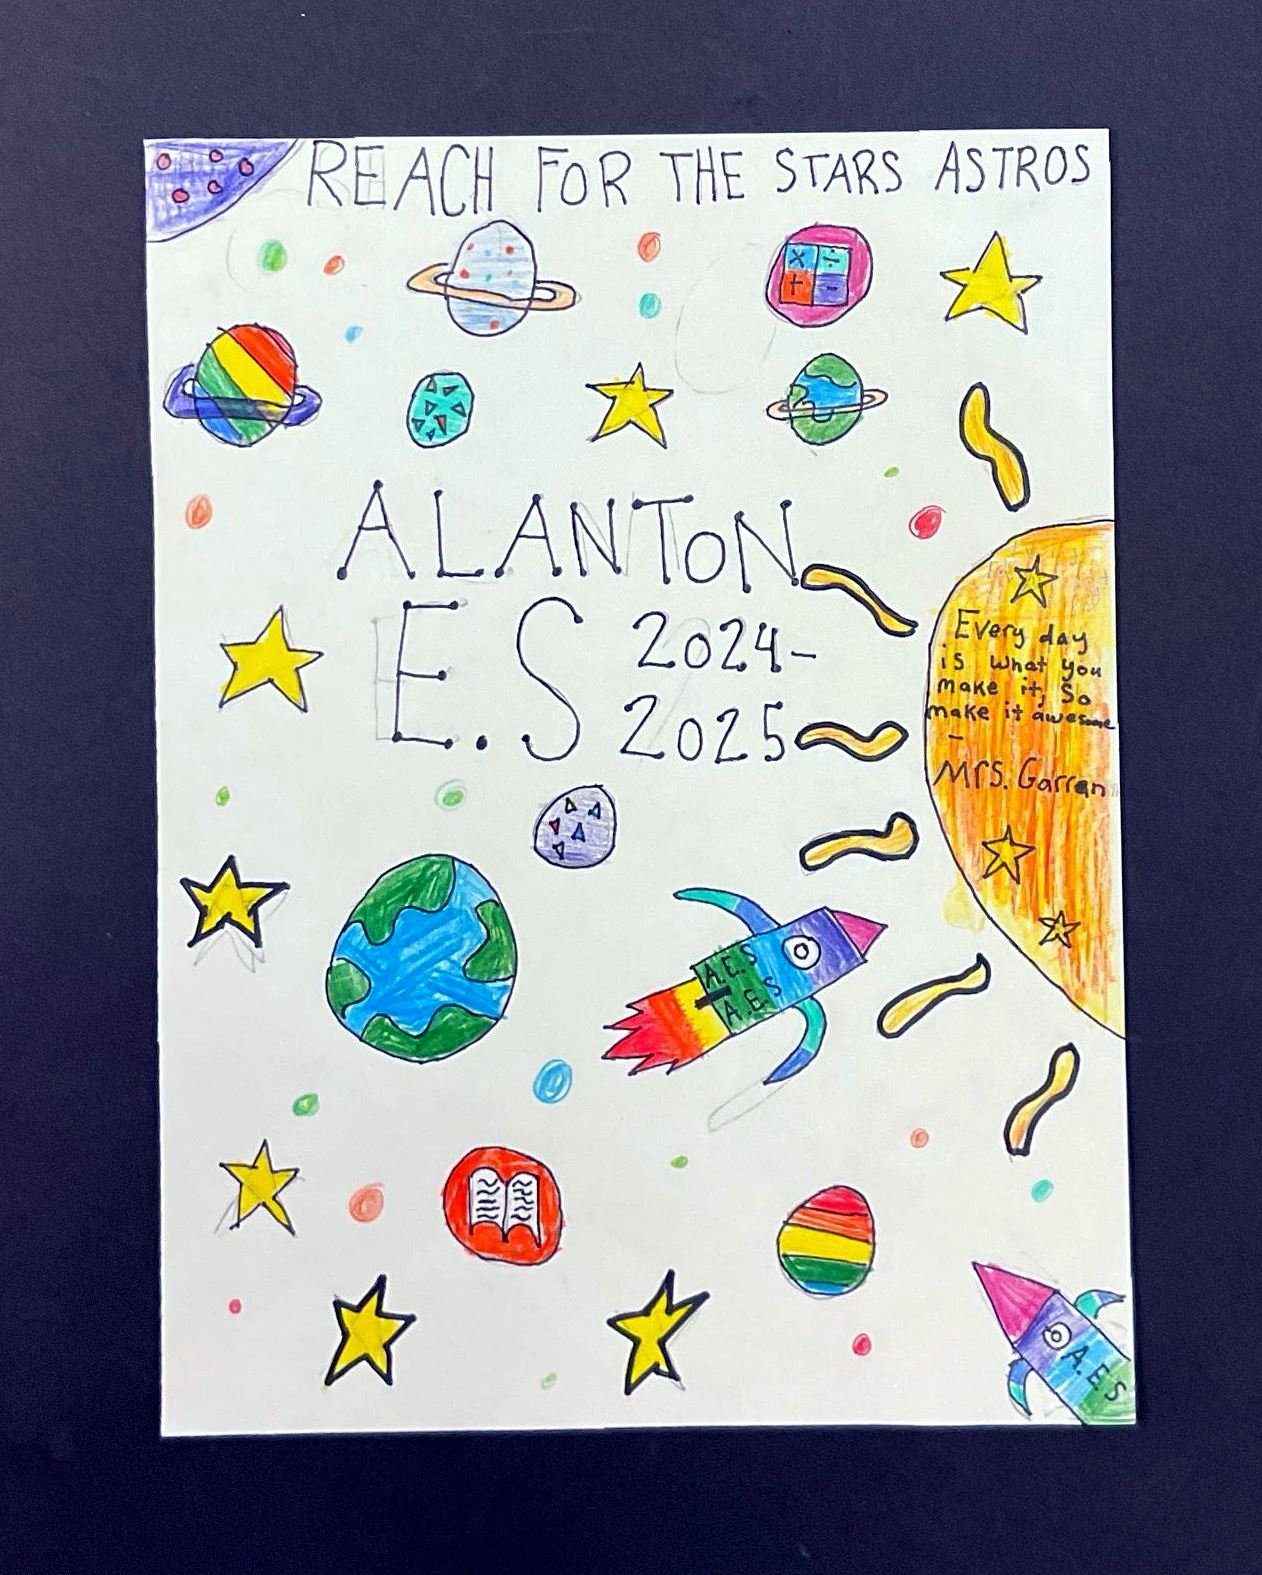 REACH FOR THE STARS ASTROS
× ÷
+ -
ALANTON
E.S 2024-
2025
Every day
is what you
make it, so
make it awesome
-
Mrs. Garran
A.E.S
A.E.S
A.E.S